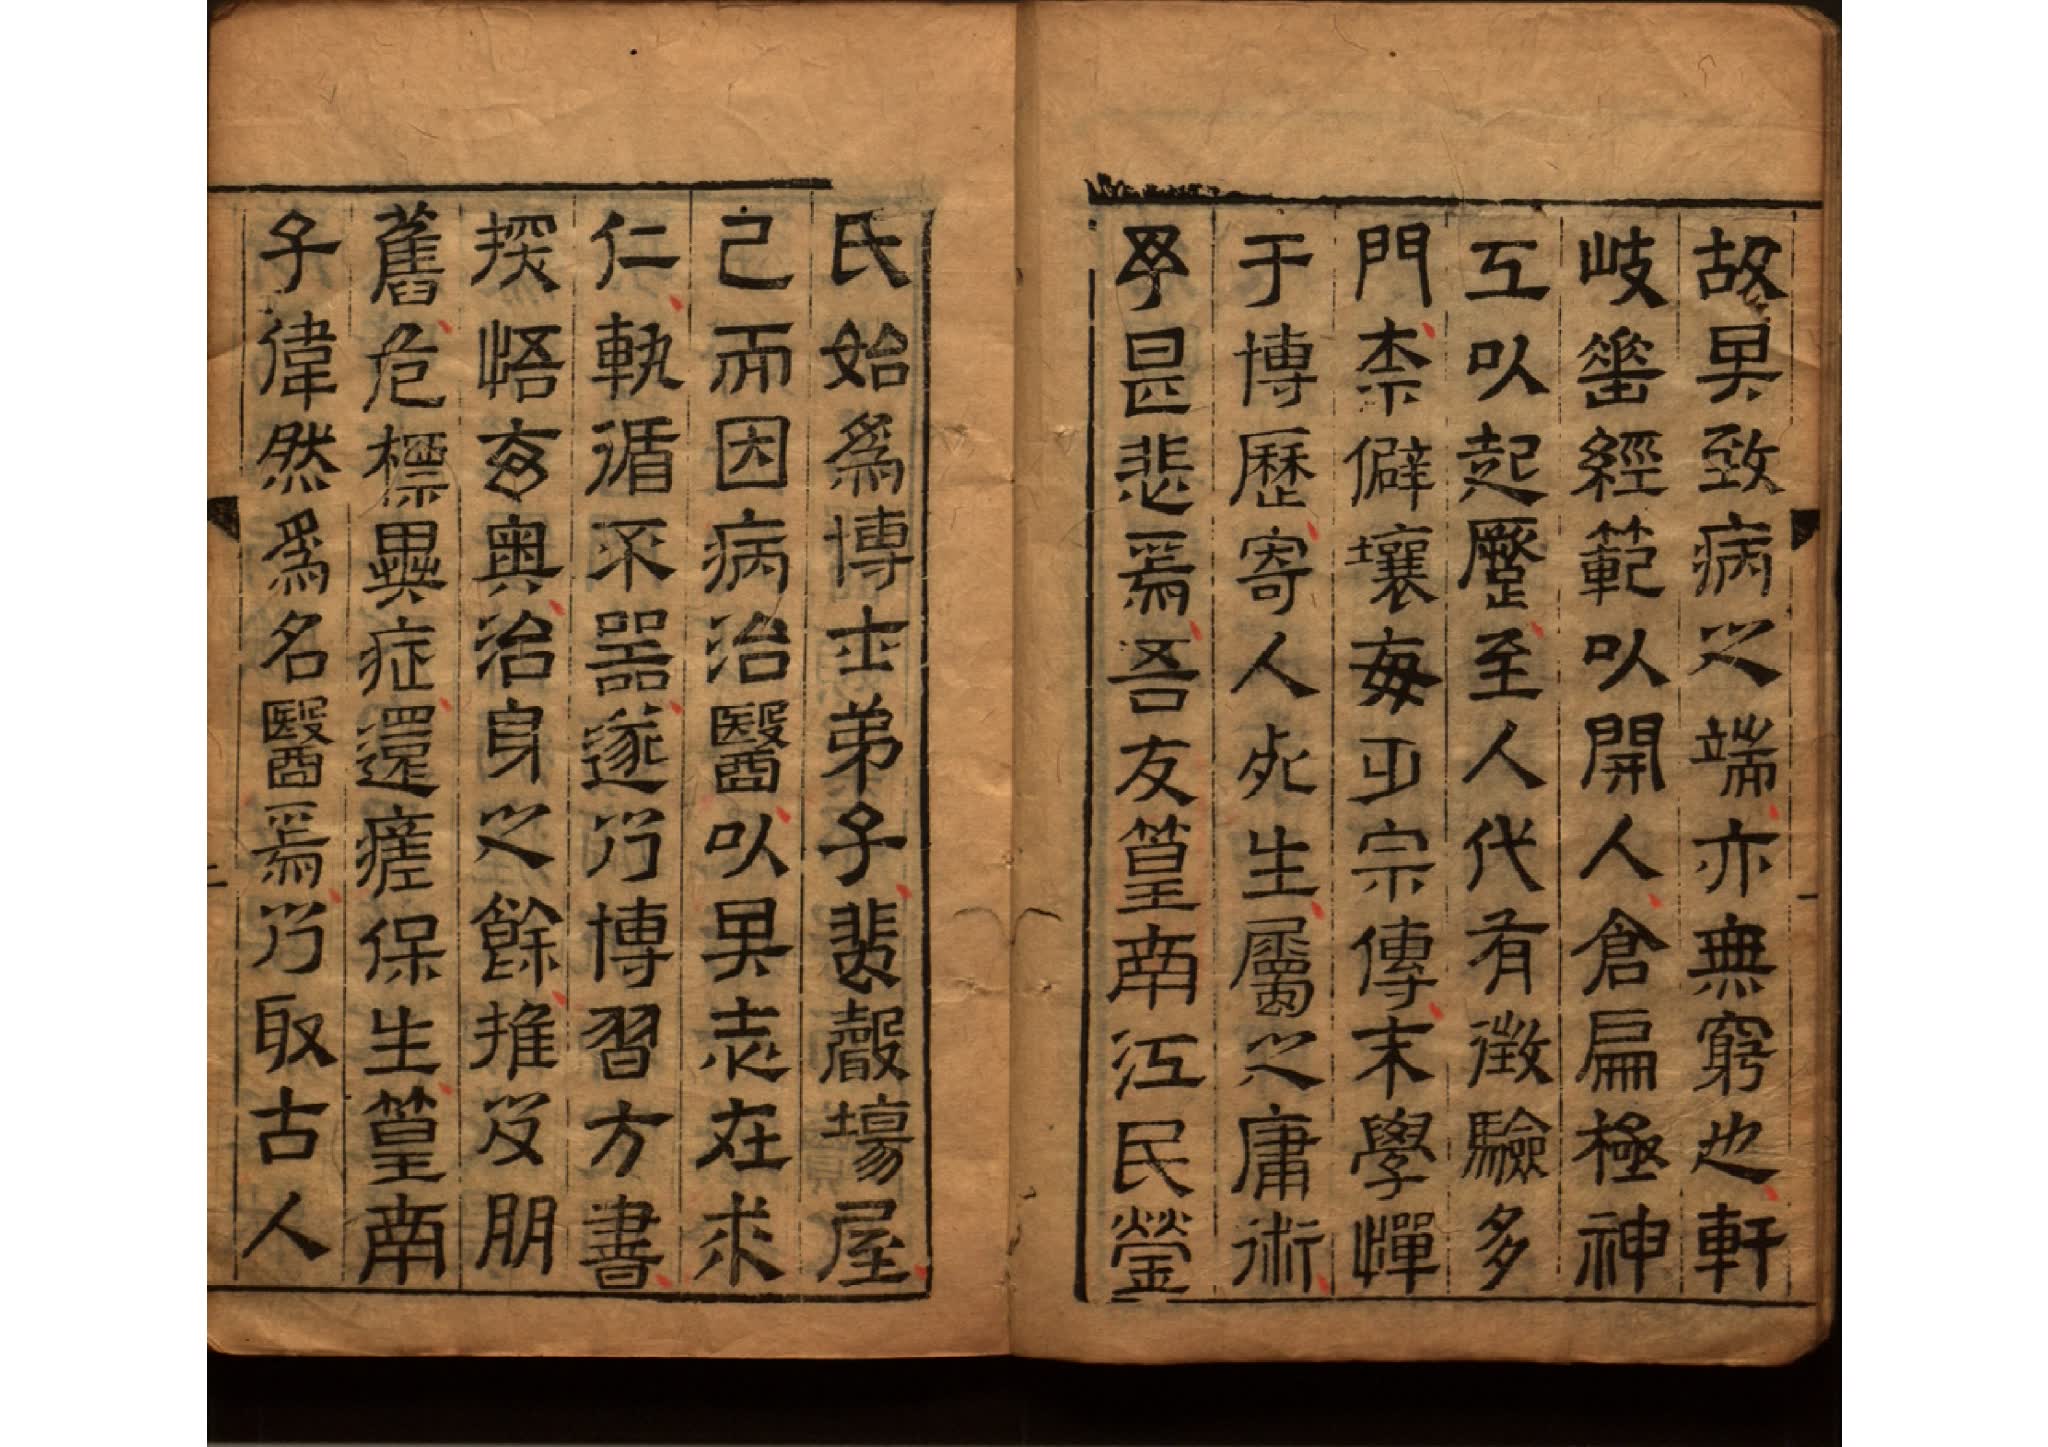 故其致病之端亦無窮也軒
岐埀經範以開人倉扁極神
工以起蹷至人代有徵驗多
門柰僻壤每乏宗傳末學憚
于博歷寄人死生屬之庸術
予甚悲焉吾友篁南江民瑩
氏始爲博士弟子裴聲場屋
已而因病治醫以其志在求
仁執循不器遂乃博習方書
探悟玄奧治身之餘推及朋
舊危標異症還瘥保生篁南
子偉然爲名醫焉乃取古人